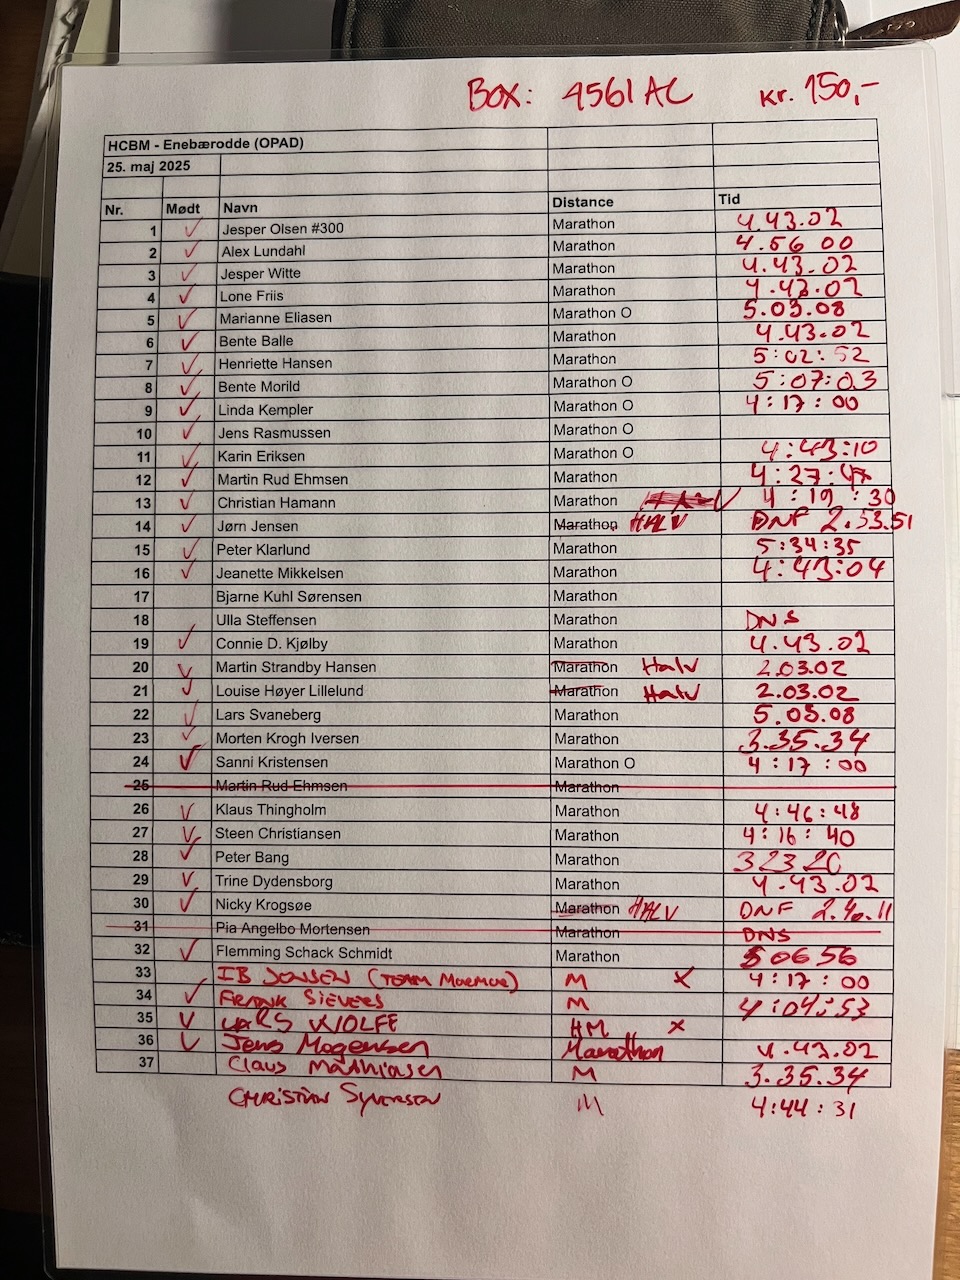 Box: 4561 AC kr. 150,-
HCBM - Enebærodde (OPAD)
25. maj 2025
Nr. Mødt Navn Distance Tid
1 ✓ Jesper Olsen #300 Marathon 4.43.02
2 ✓ Alex Lundahl Marathon 4.56 00
3 ✓ Jesper Witte Marathon 4.43.02
4 ✓ Lone Friis Marathon 4.43.02
5 ✓ Marianne Eliasen Marathon O 5.03.08
6 ✓ Bente Balle Marathon 4.43.02
7 ✓ Henriette Hansen Marathon 5:02:52
8 ✓ Bente Morild Marathon O 5:07:03
9 ✓ Linda Kempler Marathon O 4:17:00
10 Jens Rasmussen Marathon O
11 ✓ Karin Eriksen Marathon O 4:43:10
12 ✓ Martin Rud Ehmsen Marathon 4:27:47
13 ✓ Christian Hamann Marathon 4:19:30
14 ✓ Jørn Jensen Marathon HALV DNF 2.53.51
15 ✓ Peter Klarlund Marathon 5:34:35
16 ✓ Jeanette Mikkelsen Marathon 4:43:04
17 Bjarne Kuhl Sørensen Marathon
18 Ulla Steffensen Marathon DNS
19 ✓ Connie D. Kjølby Marathon 4.43.02
20 ✓ Martin Strandby Hansen Marathon Halv 2.03.02
21 ✓ Louise Høyer Lillelund Marathon Halv 2.03.02
22 ✓ Lars Svaneberg Marathon 5.03.08
23 ✓ Morten Krogh Iversen Marathon 3.35.34
24 ✓ Sanni Kristensen Marathon O 4:17:00
25 Martin Rud Ehmsen Marathon
26 ✓ Klaus Thingholm Marathon 4:46:48
27 ✓ Steen Christiansen Marathon 4:16:40
28 ✓ Peter Bang Marathon 3 23 20
29 ✓ Trine Dydensborg Marathon 4.43.02
30 ✓ Nicky Krogsøe Marathon HALV DNF 2.40.11
31 Pia Angelbo Mortensen Marathon DNS
32 ✓ Flemming Schack Schmidt Marathon 5 06 56
33 IB JENSEN (TEAM) M x 4:17:00
34 ✓ FRANK SIEVERS M 4:04:53
35 ✓ LARS WOLFE HM x
36 ✓ Jens Mogensen Marathon 4.43.02
37 Claus Mathiasen M 3.35.34
CHRISTIAN SYVERSEN M 4:44:31